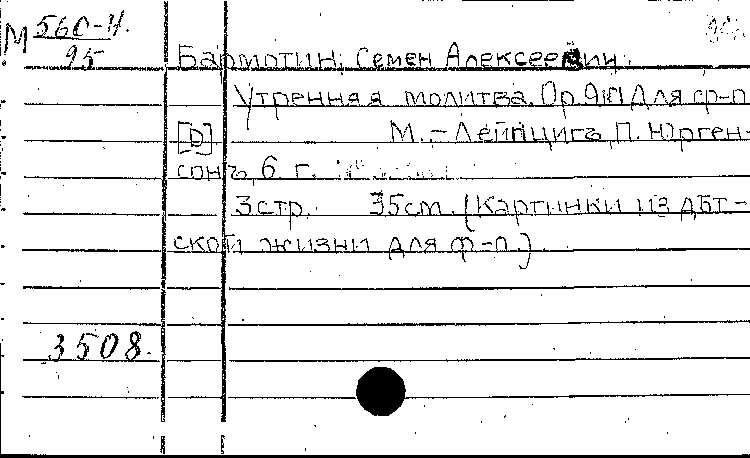 М 560-Н
95
Бармотин, Семен Алексеевич.
Утренняя молитва. Ор. 9 Для ф-п.
[D] М. – Лейпцигъ, П. Юрген-
сонъ, б. г.
3 стр. 35 см. (Картинки из дѣт-
ской жизни для ф-п.)
3508.